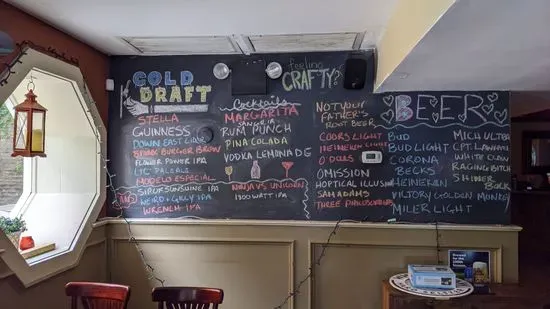 COLD
DRAFT
STELLA
GUINNESS
DOWN EAST CIDER
SMAK BURGER BROWN
FLOWER POWER IPA
LIL PALEALS
MODELO ESPECIAL
SIPOFSUNSHINE IPA
WEIRD + GNLY IPA
WRENCH IPA
Cocktails
MARGARITA
SANGRIA
RUM PUNCH
PINA COLADA
VODKA LEMONADE
NINJA VS. UNICORN
1900 WATT IPA
feeling
CRAFTY?
NOT YOUR
FATHER'S
ROOT BEER
COORS LIGHT
HEINEKEN LIGHT
O DOULS
OMISSION
HOPTICAL ILLUSION
SAM ADAMS
THREE PHILOSOPHERS
BEER
BUD
BUD LIGHT
CORONA
BECKS
HEINEKAN
VICTORY GOLDEN MONKEY
MILER LIGHT
MICH ULTRA
CPT. LAWHAM
WHITE CLAW
RAGING BITCH
SHINER
BOCK